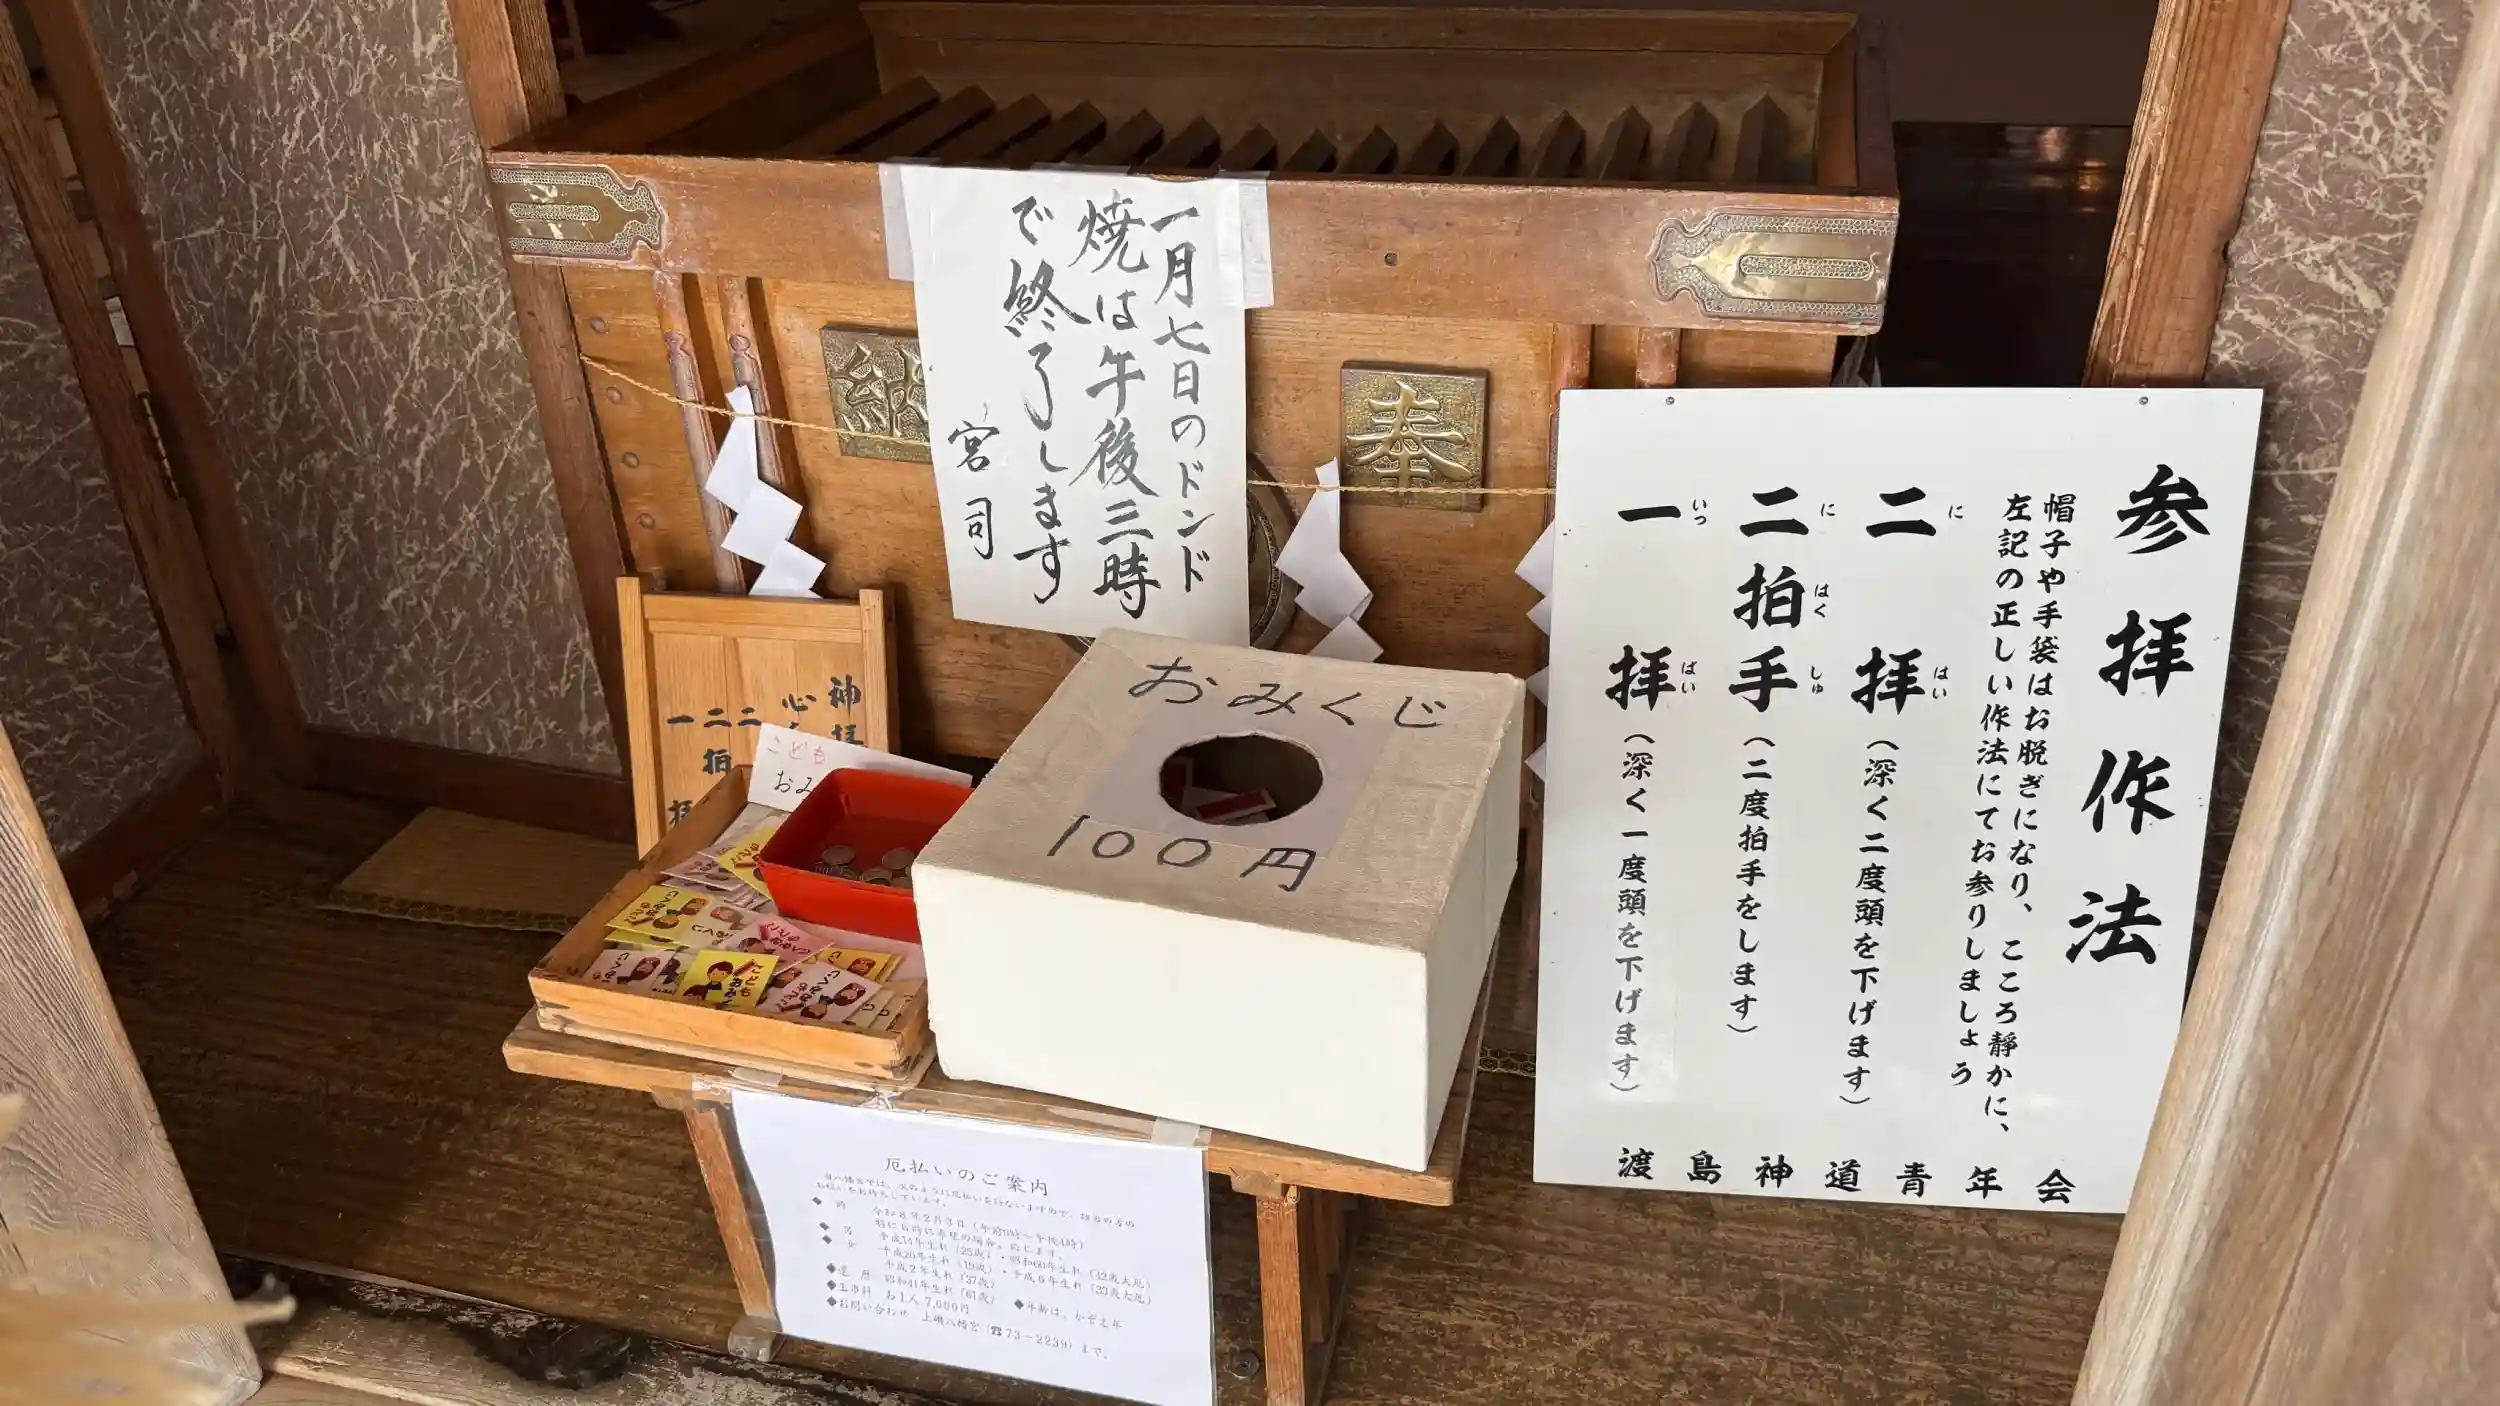 一月七日のドンド
焼は午後三時
で終了します
宮司
奉
納
参拝作法
帽子や手袋はお脱ぎになり、こころ静かに、
左記の正しい作法にてお参りしましょう
二拝（深く二度頭を下げます）
に はい
二拍手（二度拍手をします）
に はく しゅ
一拝（深く一度頭を下げます）
いっ はい
渡島神道青年会
おみくじ
100円
神拝
心
二
二拍
一拝
こども
おみ
こども
おみ
厄払いのご案内
令和8年2月3日（午前9時〜午後4時）
平成14年生れ（25歳）・昭和60年生れ（42歳大厄）
平成20年生れ（19歳）・平成6年生れ（33歳大厄）
平成2年生れ（37歳）
◆還暦 昭和41年生れ（61歳） ◆年齢は、かぞえ年
◆玉串料 お1人 7,000円
◆お問い合わせ 上磯八幡宮（☎73－2239）まで。